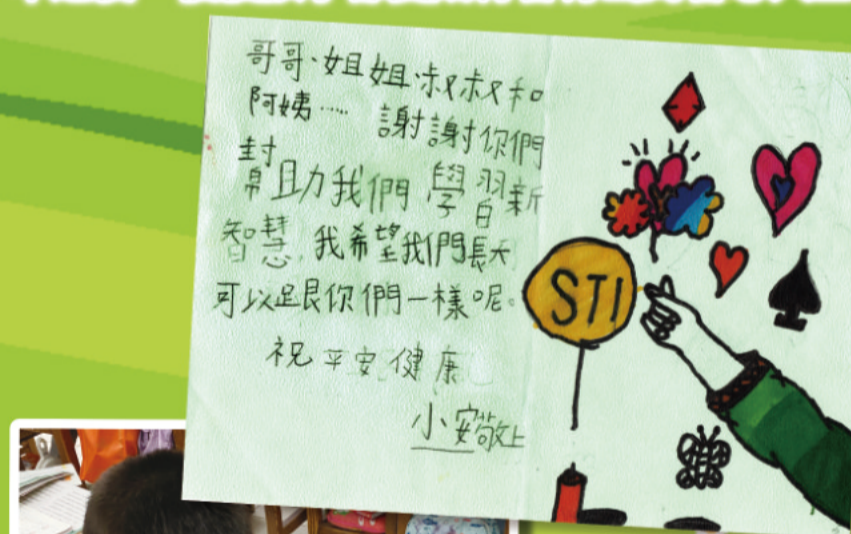 哥哥、姐姐、叔叔和
阿姨…… 謝謝你們
幫助我們學習新
智慧，我希望我們長大
可以跟你們一樣呢。
祝平安健康
小安敬上
STI